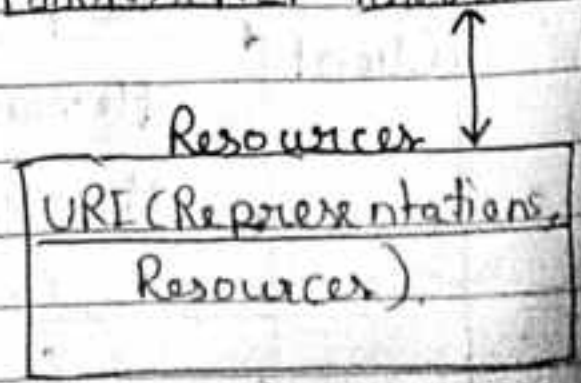 Resources
URI (Representations,
Resources).